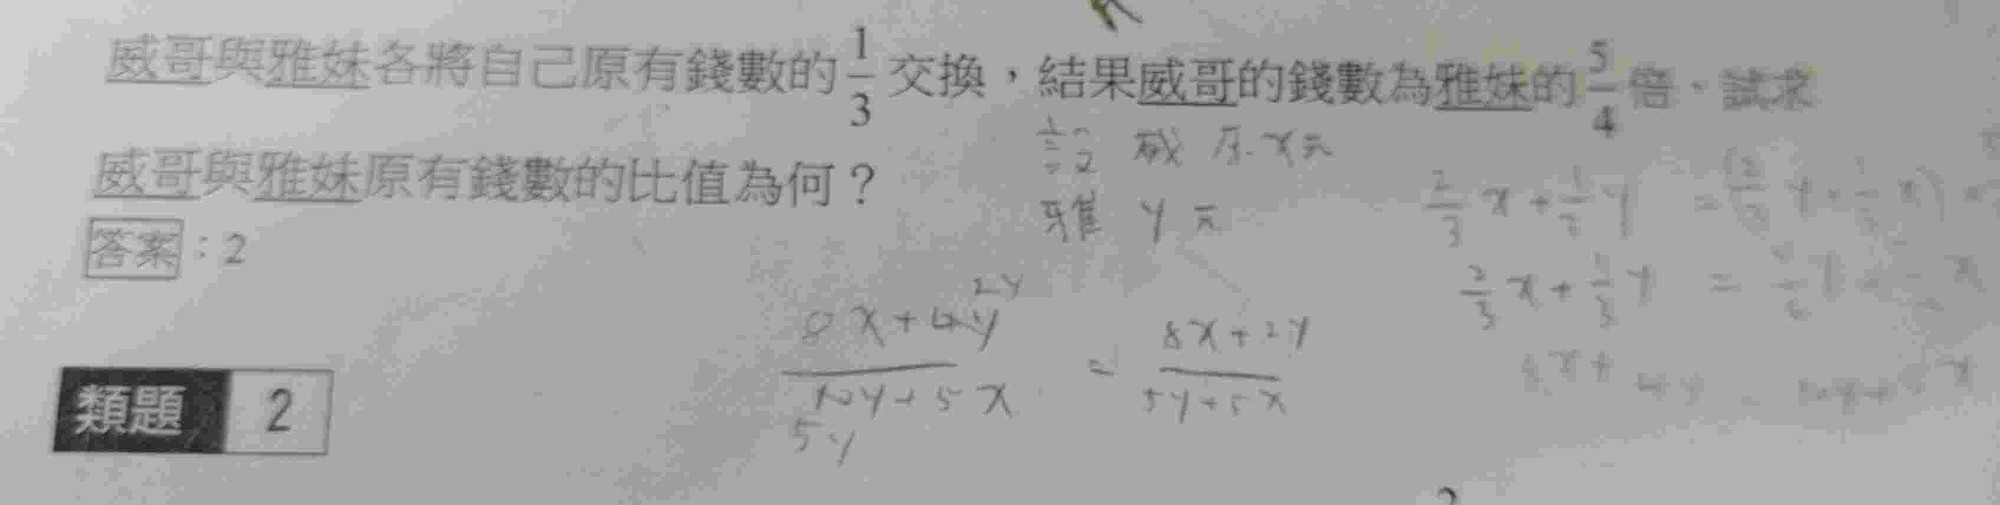 威哥與雅妹各將自己原有錢數的 1/3 交換，結果威哥的錢數為雅妹的 5/4 倍。試求
威哥與雅妹原有錢數的比值為何？
設 威 原 x元
雅 y 元
答案：2
2/3 x + 1/3 y =
2/3 x + 1/3 y =
2y
8x+4y
10y+5x
5y
= 8x+2y
5y+5x
類題 2